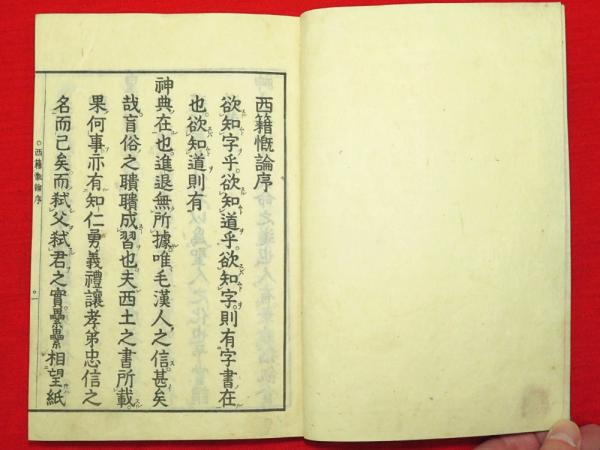 西籍慨論序
欲知字乎欲知道乎欲知字則有字書在
也欲知道則有
神典在也進退無所據唯毛漢人之信甚矣
哉盲俗之聵聵成習也夫西土之書所載
果何事亦有知仁勇義禮讓孝弟忠信之
名而已矣而弑父弑君之實纍纍相望紙
西籍慨論序